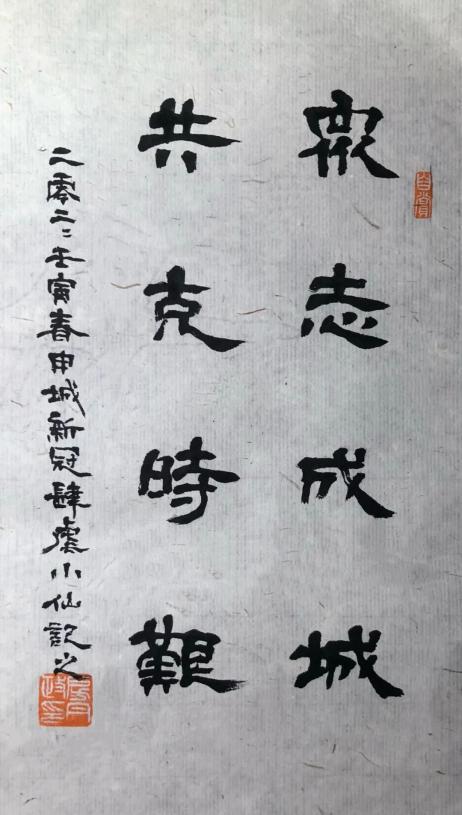 眾志成城
共克時艱
二零二二壬寅春申城新冠肆虐小仙記之